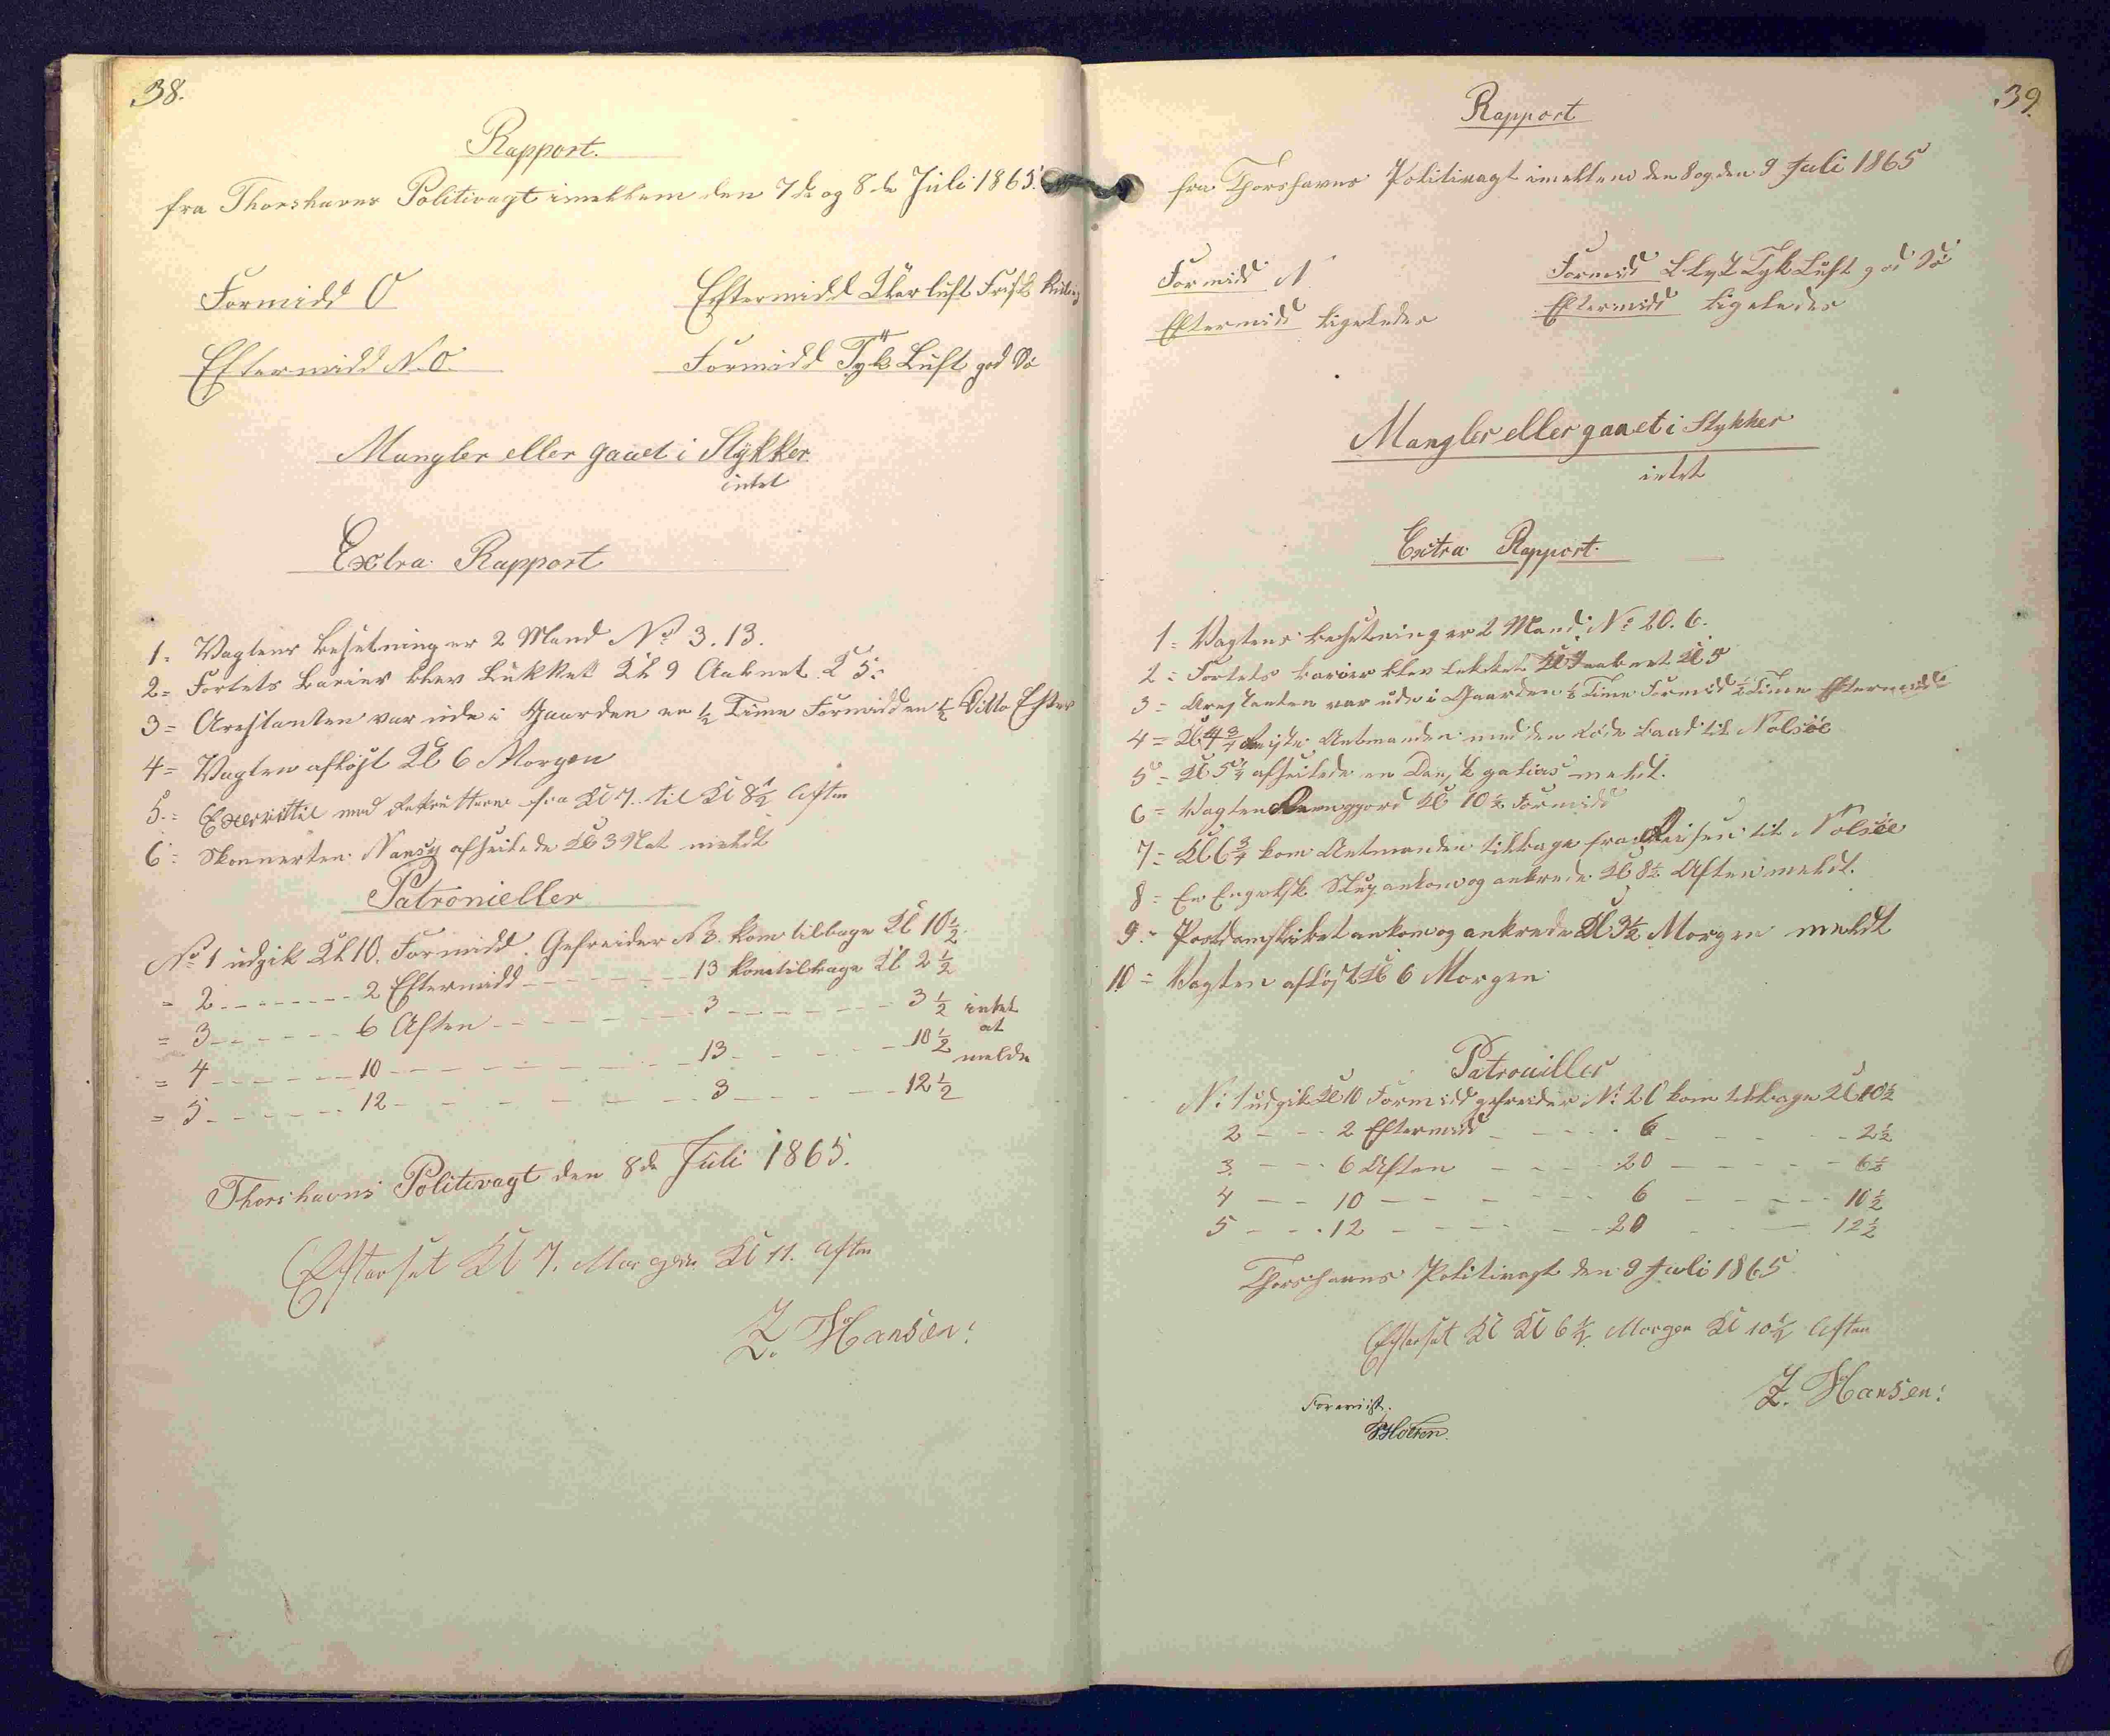 38.
Rapport.
fra Thorshavns Politivagt imellem den 7de og 8de Juli 1865.
Formidd O Eftermidd Klar luft Frisk Kuling
Eftermidd N.O. Formidd Tyk Luft god Sö
Mangler eller gaaet i Stykker
intet
Extra Rapport
1. Vagtens besetning er 2 Mand No 3. 13.
2= Fortets barier blev Lukket Kl 9 Aabnet Kl 5.
3= Arestanten var ude i Gaarden en ½ Time Formidd en ½ Ditto Efter
4= Vagten afløst Kl 6 Morgen
5.= med Rekrutterne fra Kl 7. til Kl 8½ Aften
6= Skonnerten Nancy afseilede Kl 3 Nat meldt
Patronieller
No 1 udgik Kl 10. Formidd. Gefreider N 3. kom tilbage Kl 10½
= 2 - - - - 2 Eftermidd - - - - 13 kom tilbage Kl 2½
= 3 - - - - 6 Aften - - - - 3 - - - - 3½ intet
= 4 - - - - 10 - - - - 13 - - - - 10½ at
= 5 - - - - 12 - - - - 3 - - - - 12½ melde
Thorshavns Politivagt den 8de Juli 1865.
Efterset Kl 7. Morgen Kl 11. Aften
Z. Hansen.
39.
Rapport
fra Thorshavns Politivagt imellem den 8 og den 9 Juli 1865
Formidd N Formidd Tyk Luft god Sö
Eftermidd ligeledes Eftermidd ligeledes
Mangler eller gaaet i Stykker
intet
Extra Rapport.
1= Vagtens besetning er 2 Mand. No 20. 6.
2= Fortets barier blev lukket Kl 9 aabnet Kl 5
3= Arestanten var ude i Gaarden ½ Time Formidd ½ Time Eftermidd
4= Kl 4¾ Reiste Amtmanden med den Røde baad til Nolsöe
5= Kl 5¼ afseilede en Dansk galias meldt.
6= Vagten Reengjord Kl 10½ Formidd
7= Kl 6¾ kom Amtmanden tilbage fra Reisen til Nolsöe
8= En Engelsk Slup ankom og ankrede Kl 8½ Aften meldt.
9= Postdampskibet ankom og ankrede Kl 3½ Morgen meldt
10= Vagten afløst Kl 6 Morgen
Patrouiller
No 1 udgik Kl 10 Formidd gefreider No 20 kom tilbage Kl 10½
2 - - - 2 Eftermidd - - - - 6 - - - - 2½
3. - - - 6 Aften - - - - 20 - - - - 6½
4 - - - 10 - - - - 6 - - - - 10½
5 - - - 12 - - - - 20 - - - - 12½
Thorshavns Politivagt den 9 Juli 1865
Efterset Kl Kl 6½ Morgen Kl 10½ Aften
Z. Hansen.
Forevist.
HHolten.